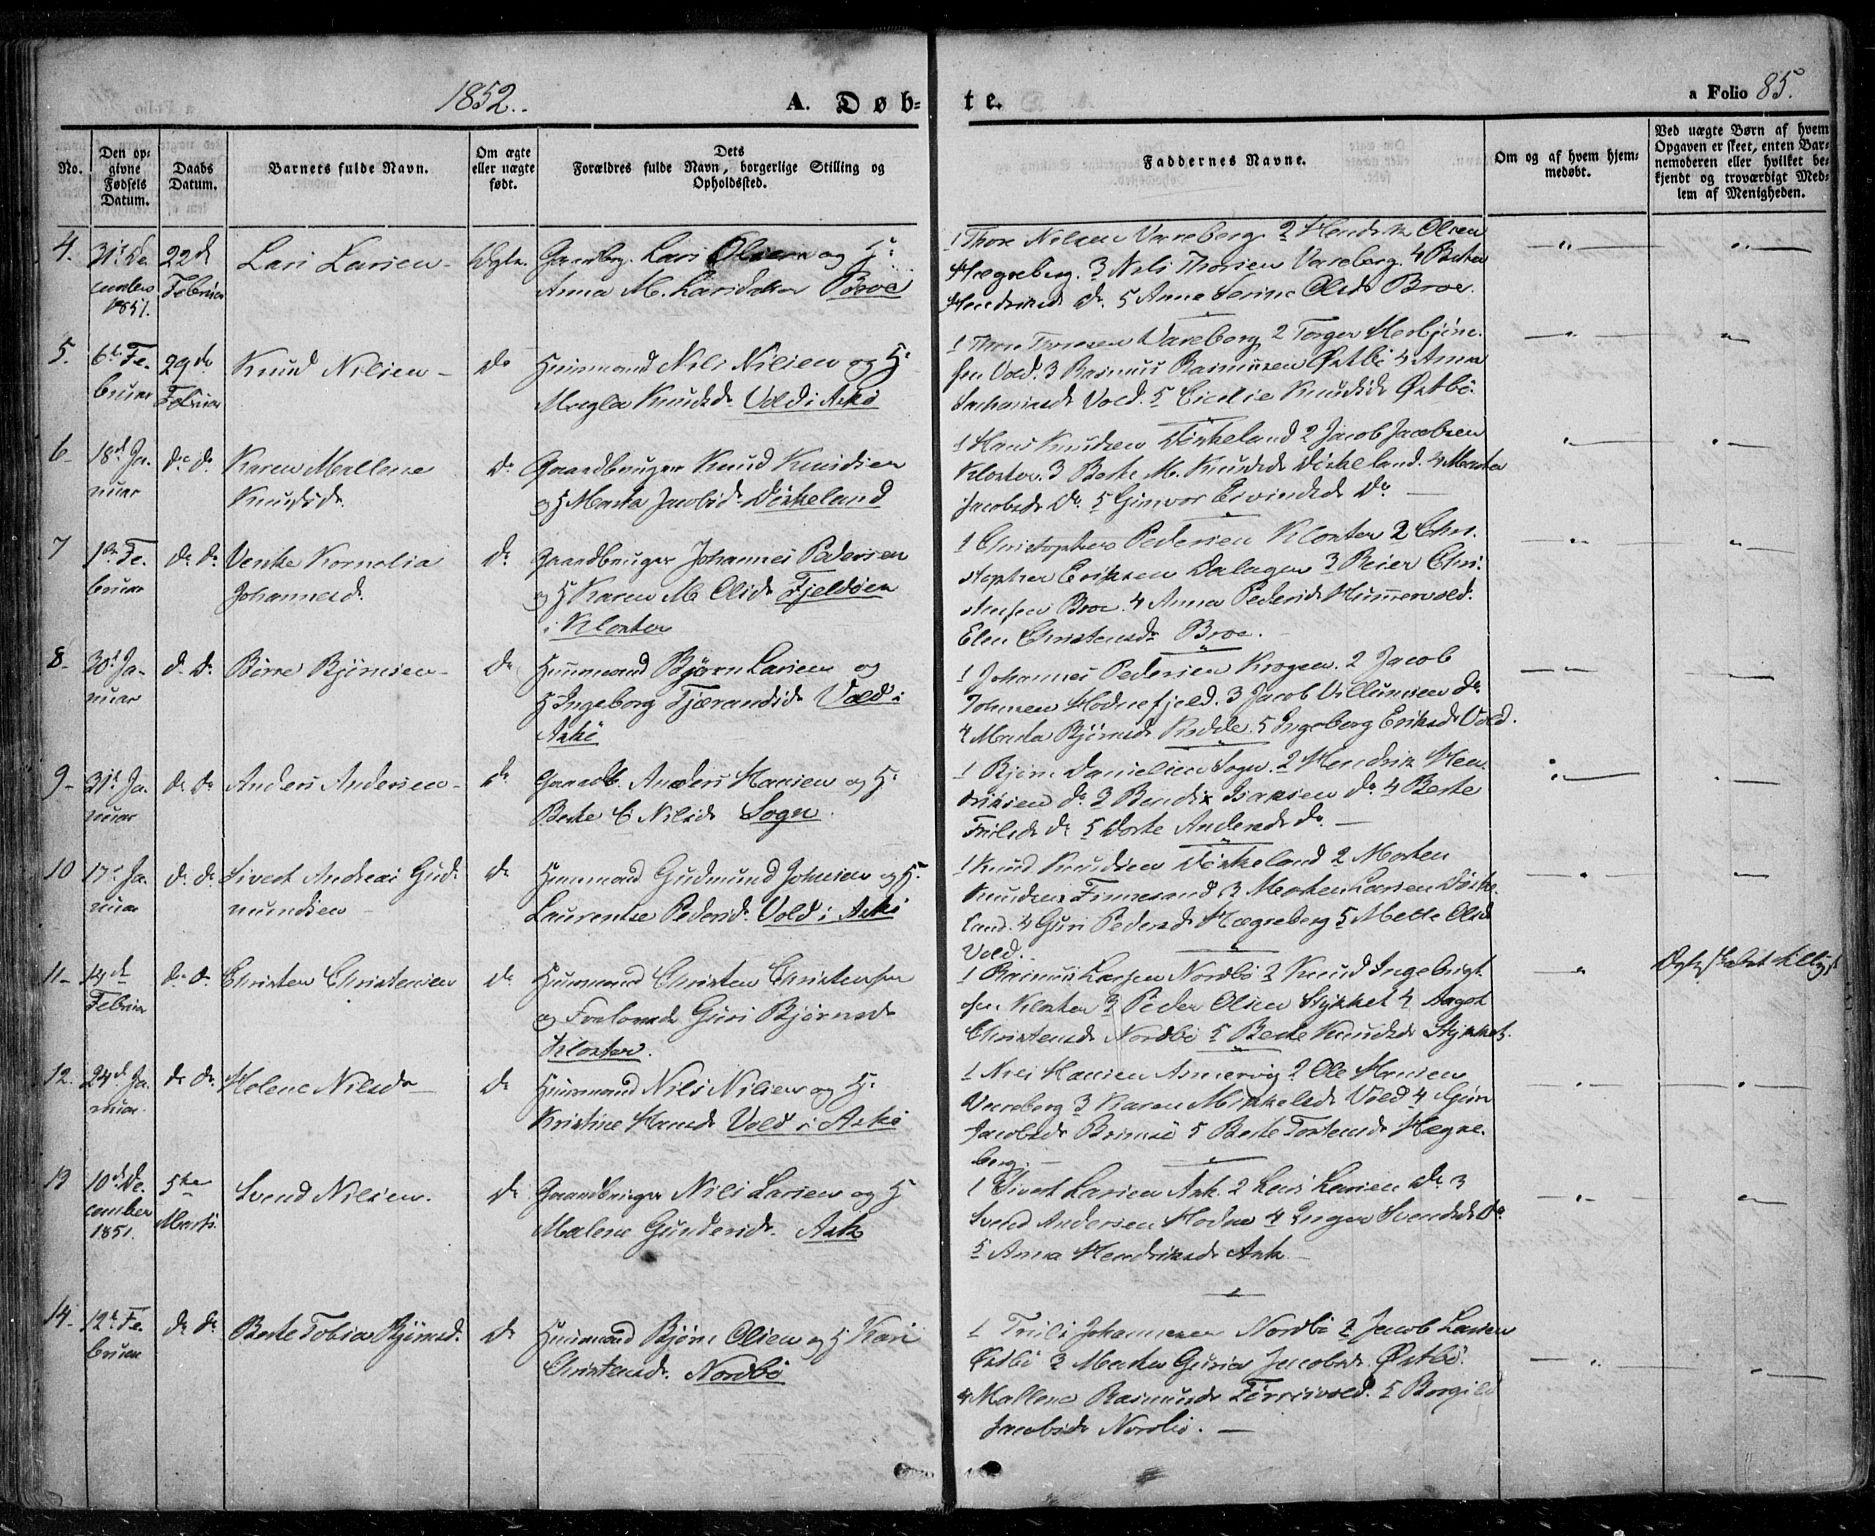 1852.
A. Døb-
te.
a Folio 85.
No.
Den op-
givne
Fødsels
Datum.
Daabs
Datum.
Barnets fulde Navn.
Om ægte
eller uægte
født.
Dets
Forældres fulde Navn, borgerlige Stilling og
Opholdssted.
Faddernes Navne.
Om og af hvem hjem-
medøbt.
Ved uægte Børn af hvem
Opgaven er skeet, enten Bar-
nemoderen eller hvilket be-
kjendt og troværdigt Med-
lem af Menigheden.
4.
31t De
cember
1851.
22d
Februar
Lars Larsen
Ægte
Gaardbr. Lars Olsen og H:
Anna M. Larsdatter Broe
1 Thore Nilsen Vareberg 2 Hendrik Olsen
Hægreberg. 3 Nils Thorsen Vareberg. 4 Berte
Hendriksd Do. 5 Anne Serine Olsd Broe.
5.
6te Fe-
bruar
29de
Februar
Knud Nilsen
Do
Huusmand Nils Nilsen og H:
Magla Knudsd. Vold i Askø
1 Thore Thoresen Vareberg 2 Torger Ambjørn-
sen Vold. 3 Rasmus Rasmussen Østbø 4 Anna
Zachariasd Vold. 5 Cicilie Knudsd Østbø.
6
18d Ja-
nuar
do do
Karen Mallene
Knudsd.
Do
Gaardbruger Knud Knudsen
og H Marta Jacobsd. Dirkeland
1 Hans Knudsen Dirkeland 2 Jacob Jacobsen
Kloster. 3 Berte M. Knudsd Dirkeland. 4 Marta
Jacobsd Do. 5 Ginvor Eivindsd Do
7
1ste Fe-
bruar
do do
Venke Kornelia
Johannesd.
Do
Gaardbruger Johannes Pedersen
og H Karen M. Olsd. Fjeldøen
i Kloster
1 Christopher Pedersen Kloster 2 Chri-
stopher Eriksen Dalagen 3 Reier Chri-
stensen Broe. 4 Anna Pedersd Hummervold.
Elen Christensd. Broe.
8
30t Ja-
nuar
do do
Børre Bjørnsen
Do
Huusmand Bjørn Larsen og
H Ingeborg Tjærandsd. Vold i
Askø
1 Johannes Pedersen Krogen. 2 Jacob
Johnsen Hodnefjeld. 3 Jacob Villumsen do
4 Marta Bjørnsd Rødde. 5 Ingeborg Eriksd Vold.
9
31t Ja-
nuar
do do
Anders Andersen
Do
Gaardb. Anders Hansen og H:
Berte C Nilsd. Sogn.
1 Bjørn Danielsen Sogn. 2 Hendrik Hen-
driksen do 3 Bendix Isaksen do 4 Berte
Trulsd do 5 Dorte Andersd do.
10
17d Ja-
nuar
do do
Sivert Andreas Gud-
mundsen
Do
Huusmand Gudmund Johnsen og H:
Laurentse Pedersd. Vold i Askø
1 Knud Knudsen Dirkeland 2 Morten
Knudsen Finnesand 3 Morten Larsen Dirke-
land. 4 Guri Pedersd Hægreberg 5 Mette Olsd
Vold.
11
14d
Februar
do do
Christen Christensen
Do
Huusmand Christen Christensen
og Forlovede Guri Bjørnsd
Kloster.
1 Rasmus Larsen Nordbø 2 Knud Ingebrigt-
sen Kloster 3 Peder Olsen Stykket 4 Aagot
Christensd Nordbø 5 Berte Knudsd Stykket.
12.
24d Ja-
nuar.
do do
Helene Nilsd
Do
Huusmand Nils Nilsen og H:
Kristine Hansd Vold i Askø
1 Nils Hansen Asmervig 2 Ole Hansen
Vareberg 3 Karen Mikkelsd Vold 4 Guri
Jacobsd Brimsø 5 Berte Torstensd Hægre-
berg.
13
10d De-
cember
1851.
5te
Marts
Svend Nilsen.
Do
Gaardbruger Nils Larsen og H
Malene Gundersd. Ask
1 Sivert Larsen Ask. 2 Lars Larsen do 3
Svend Andersen Hodne 4 Inger Svendsd Do
5 Anna Hendriksd Ask
14
12t Fe-
bruar
do do
Berte Tobia Bjørnsd.
Do
Huusmand Bjørn Olsen og H Kari
Christensd. Nordbø
1 Truls Johannesen Nordbø 2 Jacob Larsen
Østbø 3 Marta Guria Jacobsd. Østbø.
4 Mallene Rasmusd Tørrisvold. 5 Borgild
Jacobsd Nordbø.